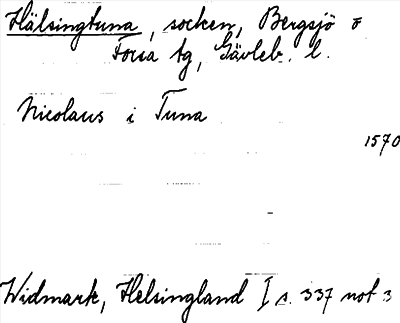 Hälsingtuna, socken, Bergsjö o
Forsa tg, Gävleb. l.
Nicolaus i Tuna
1570
Widmark, Helsingland I s. 337 not 3